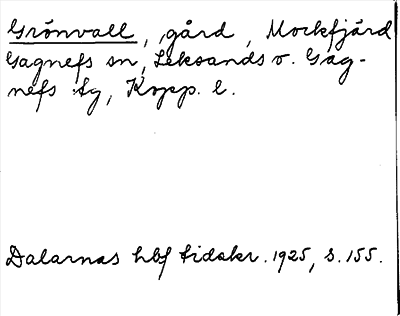 Grönvall, gård, Mockfjärd
Gagnefs sn, Leksands o. Gag-
nefs tg, Kopp. l.
Dalarnas hbf tidskr. 1925, s. 155.